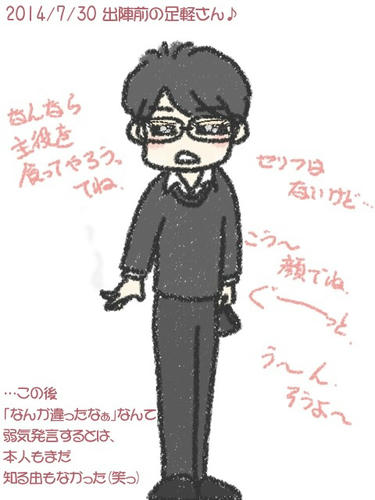 2014/7/30 出陣前の足軽さん♪
なんなら
主役を
食ってやろうっ
てね、
セリフは
ないけど…
こう〜
顔でね、
ぐーーっと、
う〜ん、
そうよ〜
…この後
「なんか違ったなぁ」なんて
弱気発言するとは、
本人もまだ
知る由もなかった(笑っ)